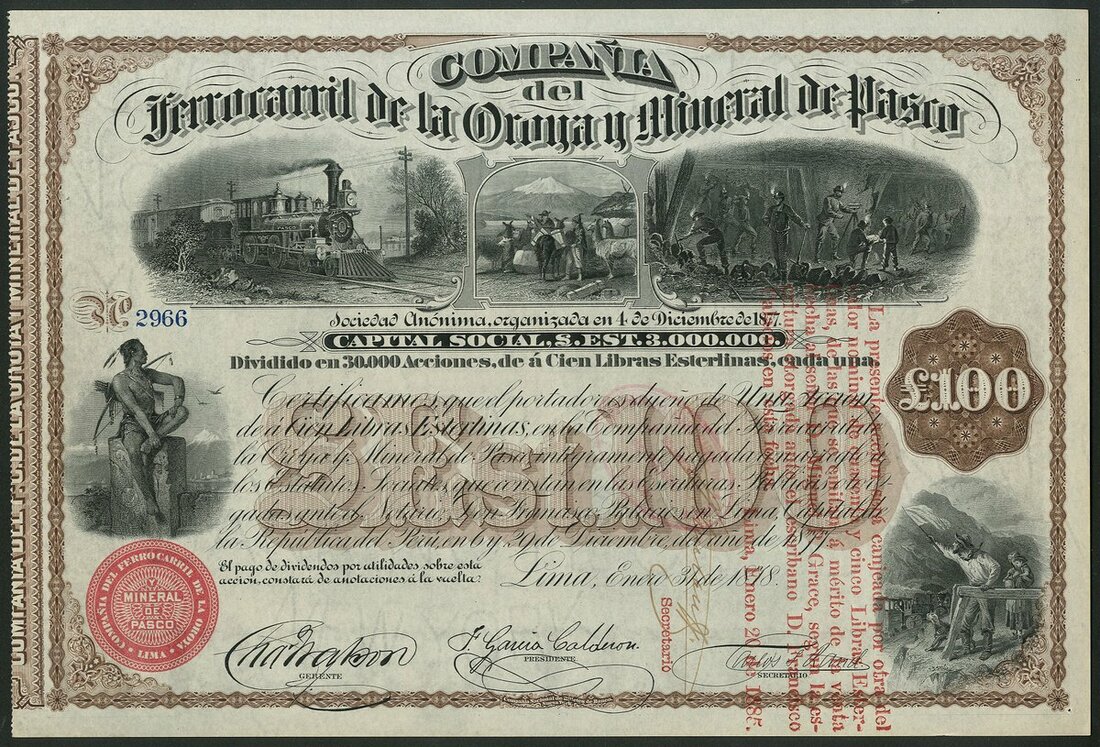 COMPAÑIA
del
Ferrocarril de la Oroya y Mineral de Pasco
Nº 2966
Sociedad Anónima, organizada en 4 de Diciembre de 1877.
CAPITAL SOCIAL, £. EST. 3.000.000.
Dividido en 30.000 Acciones, de á Cien Libras Esterlinas, cada una.
£1.00
£ Est. 100
Certificamos que el portador es dueño de Una Accion
de á Cien Libras Esterlinas, en la Compañia del Ferrocarril de
la Oroya y Mineral de Pasco, integramente pagada
los Estatutos Sociales, que constan en las Escrituras Publicas
ante el Notario, Don Francisco Palacios en Lima, Capital de
la Republica del Perú, en 6 y 29 de Diciembre del año de 1877.
El pago de dividendos por utilidades sobre esta
accion, constará de anotaciones á la vuelta.
Lima, Enero 31 de 1878.
COMPAÑIA DEL FERROCARRIL DE LA OROYA
Y
MINERAL
DE
PASCO
LIMA
F. Garcia Calderon
GERENTE
PRESIDENTE
SECRETARIO
La presente accion será canjeada por otra del
valor nominal de cuarenta y cinco Libras Ester-
linas, de las que se emitiran á mérito de la venta
hecha al señor D. Miguel P. Grace, segun la es-
critura otorgada ante el escribano D. Francisco
Palacios en esta fecha.
Lima, Enero 20 de 1885.
Secretario